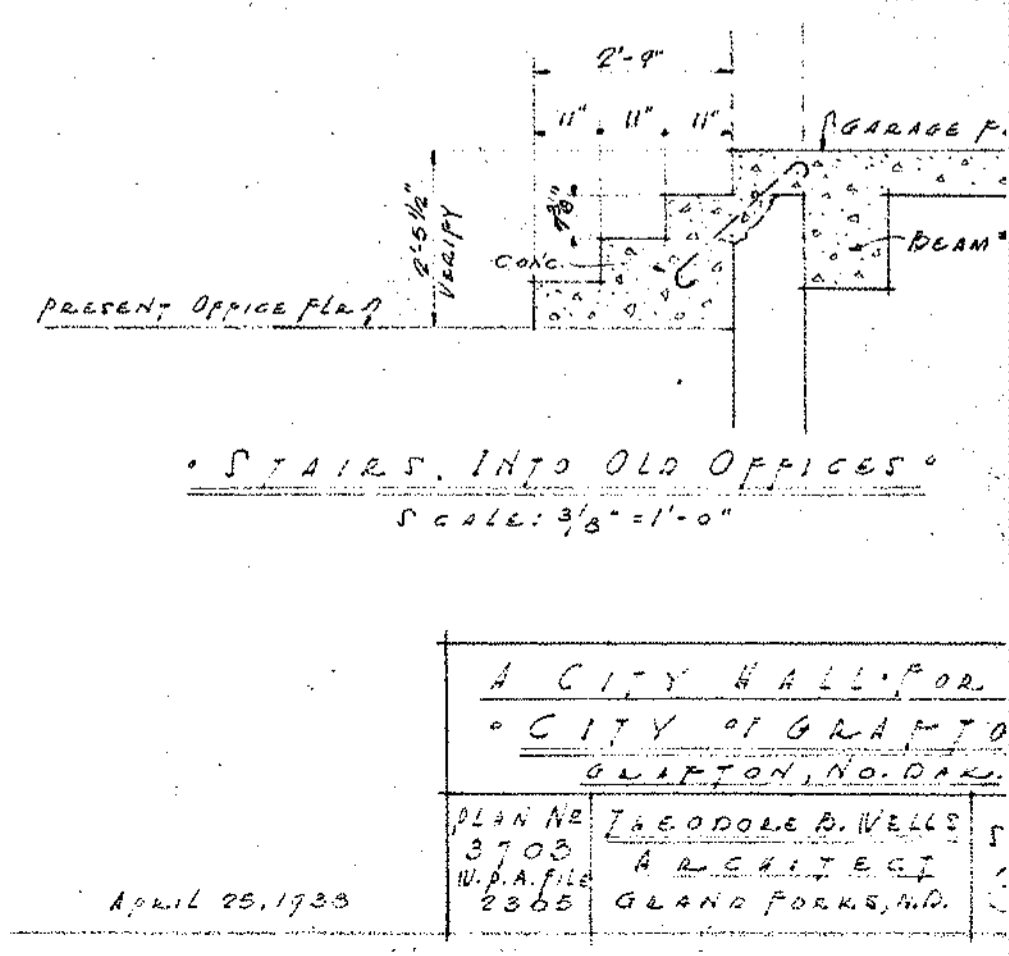 2'-9"
11" 11" 11"
GARAGE F
2'-5 1/2"
VERIFY
CONC.
BEAM
PRESENT OFFICE FLR
• STAIRS. INTO OLD OFFICES •
SCALE: 3/8" = 1'-0"
A CITY HALL • FOR
• CITY OF GRAFTO
GRAFTON, NO. DAK.
PLAN NO
3703
W.P.A. FILE
2305
THEODORE B. WELLS
ARCHITECT
GRAND FORKS, N.D.
APRIL 25, 1938